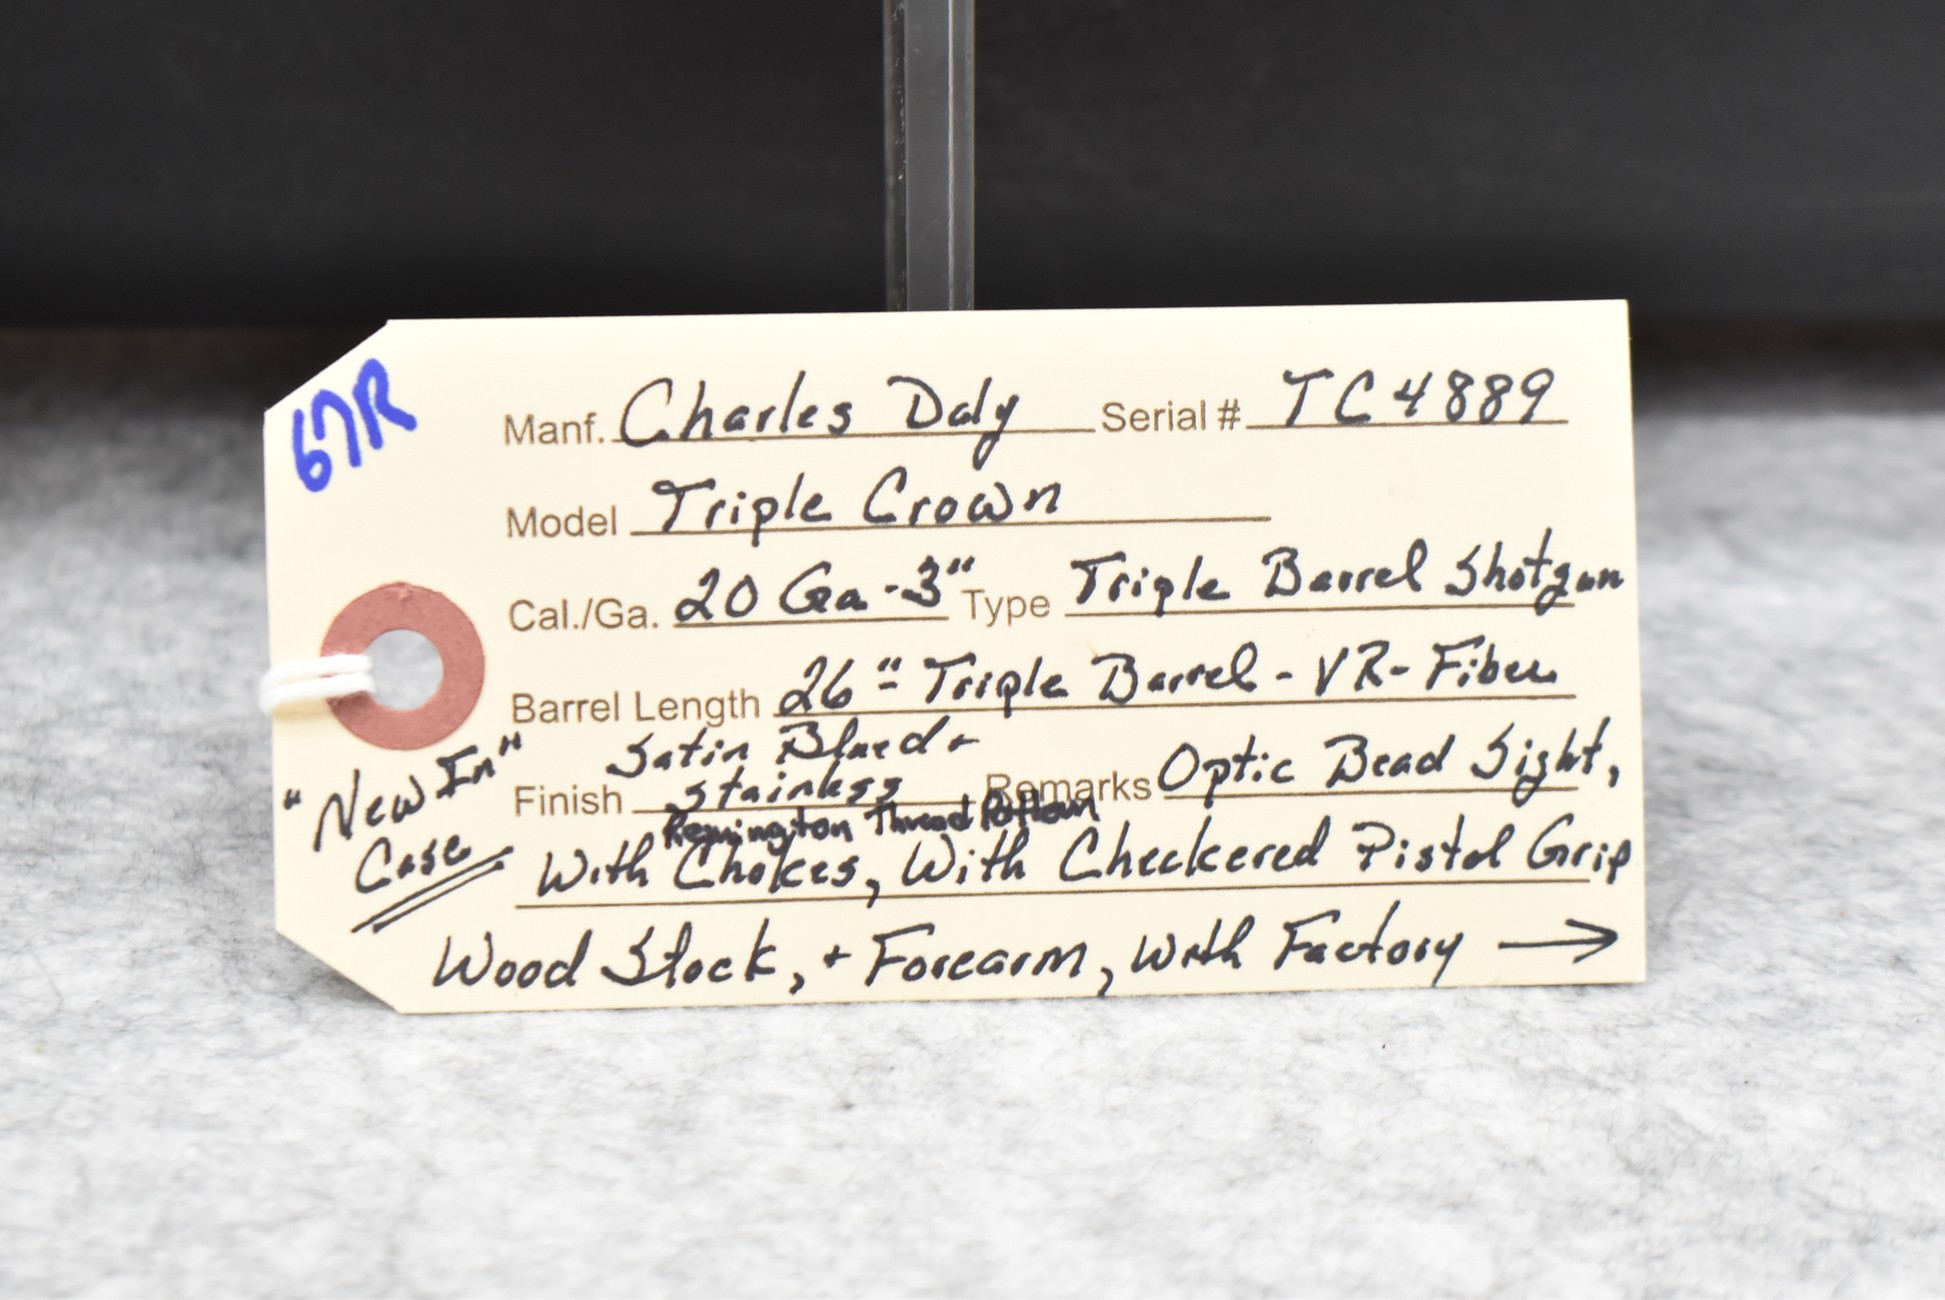 67R
Manf. Charles Daly Serial # TC4889
Model Triple Crown
Cal./Ga. 20 Ga - 3" Type Triple Barrel Shotgun
Barrel Length 26" - Triple Barrel - VR - Fiber
Satin Blued +
Finish Stainless Remarks Optic Bead Sight,
Remington Thread Pattern
With Chokes, With Checkered Pistol Grip
Wood Stock, + Forearm, With Factory →
"New In"
Case